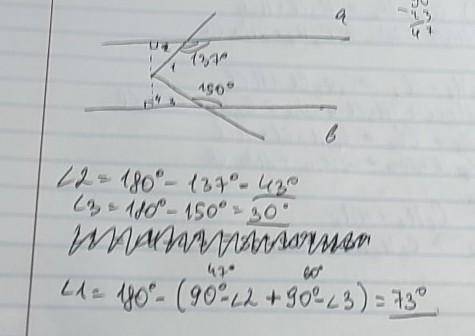 90
- 43
47
a
2
1
137°
150°
4 3
b
∠2 = 180° - 137° = 43°
∠3 = 180° - 150° = 30°
47° 60°
∠1 = 180° - (90° - ∠2 + 90° - ∠3) = 73°